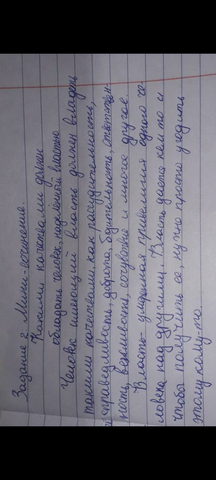 Задание 2 Мини-сочинение
Какими качествами должен
обладать человек, наделённый властью
Человек имеющий власть должен владеть
такими качествами как рассудительность,
справедливость, доброта, бдительность, ответствен-
ность, вежливость, сочувствие и многое другое.
Власть - уникальная привелегия одного че-
ловека над другими. Власть даёт кто-то и
чтобы получить её нужно просто угодить
этому кому-то